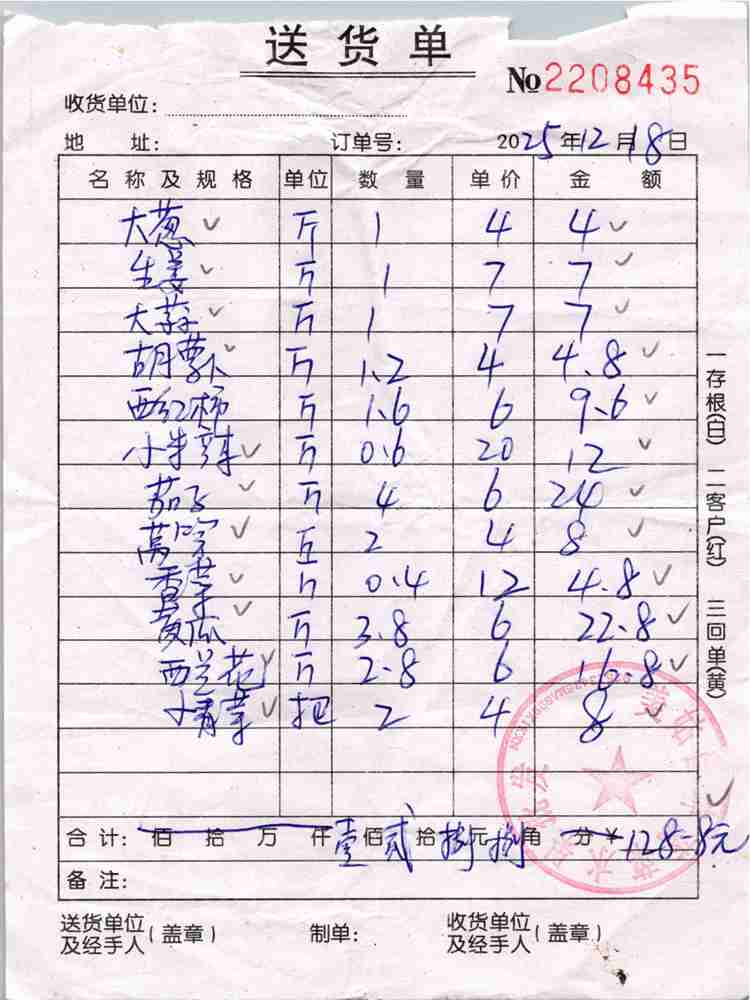 送货单
No 2208435
收货单位:
地 址: 订单号: 2025年12月18日
名称及规格 单位 数量 单价 金额
大葱 斤 1 4 4
生姜 斤 1 7 7
大蒜 斤 1 7 7
胡萝卜 斤 1.2 4 4.8
西红柿 斤 1.6 6 9.6
小牛辣 斤 0.6 20 12
茄子 斤 4 6 24
莴笋 斤 2 4 8
香菜 斤 0.4 12 4.8
黄瓜 斤 3.8 6 22.8
西兰花 斤 2.8 6 16.8
小青菜 把 2 4 8
合计: 佰 拾 万 仟壹佰贰拾捌元捌角 分¥128.8元
备注:
送货单位及经手人(盖章) 制单: 收货单位及经手人(盖章)
一存根(白) 二客户(红) 三回单(黄)